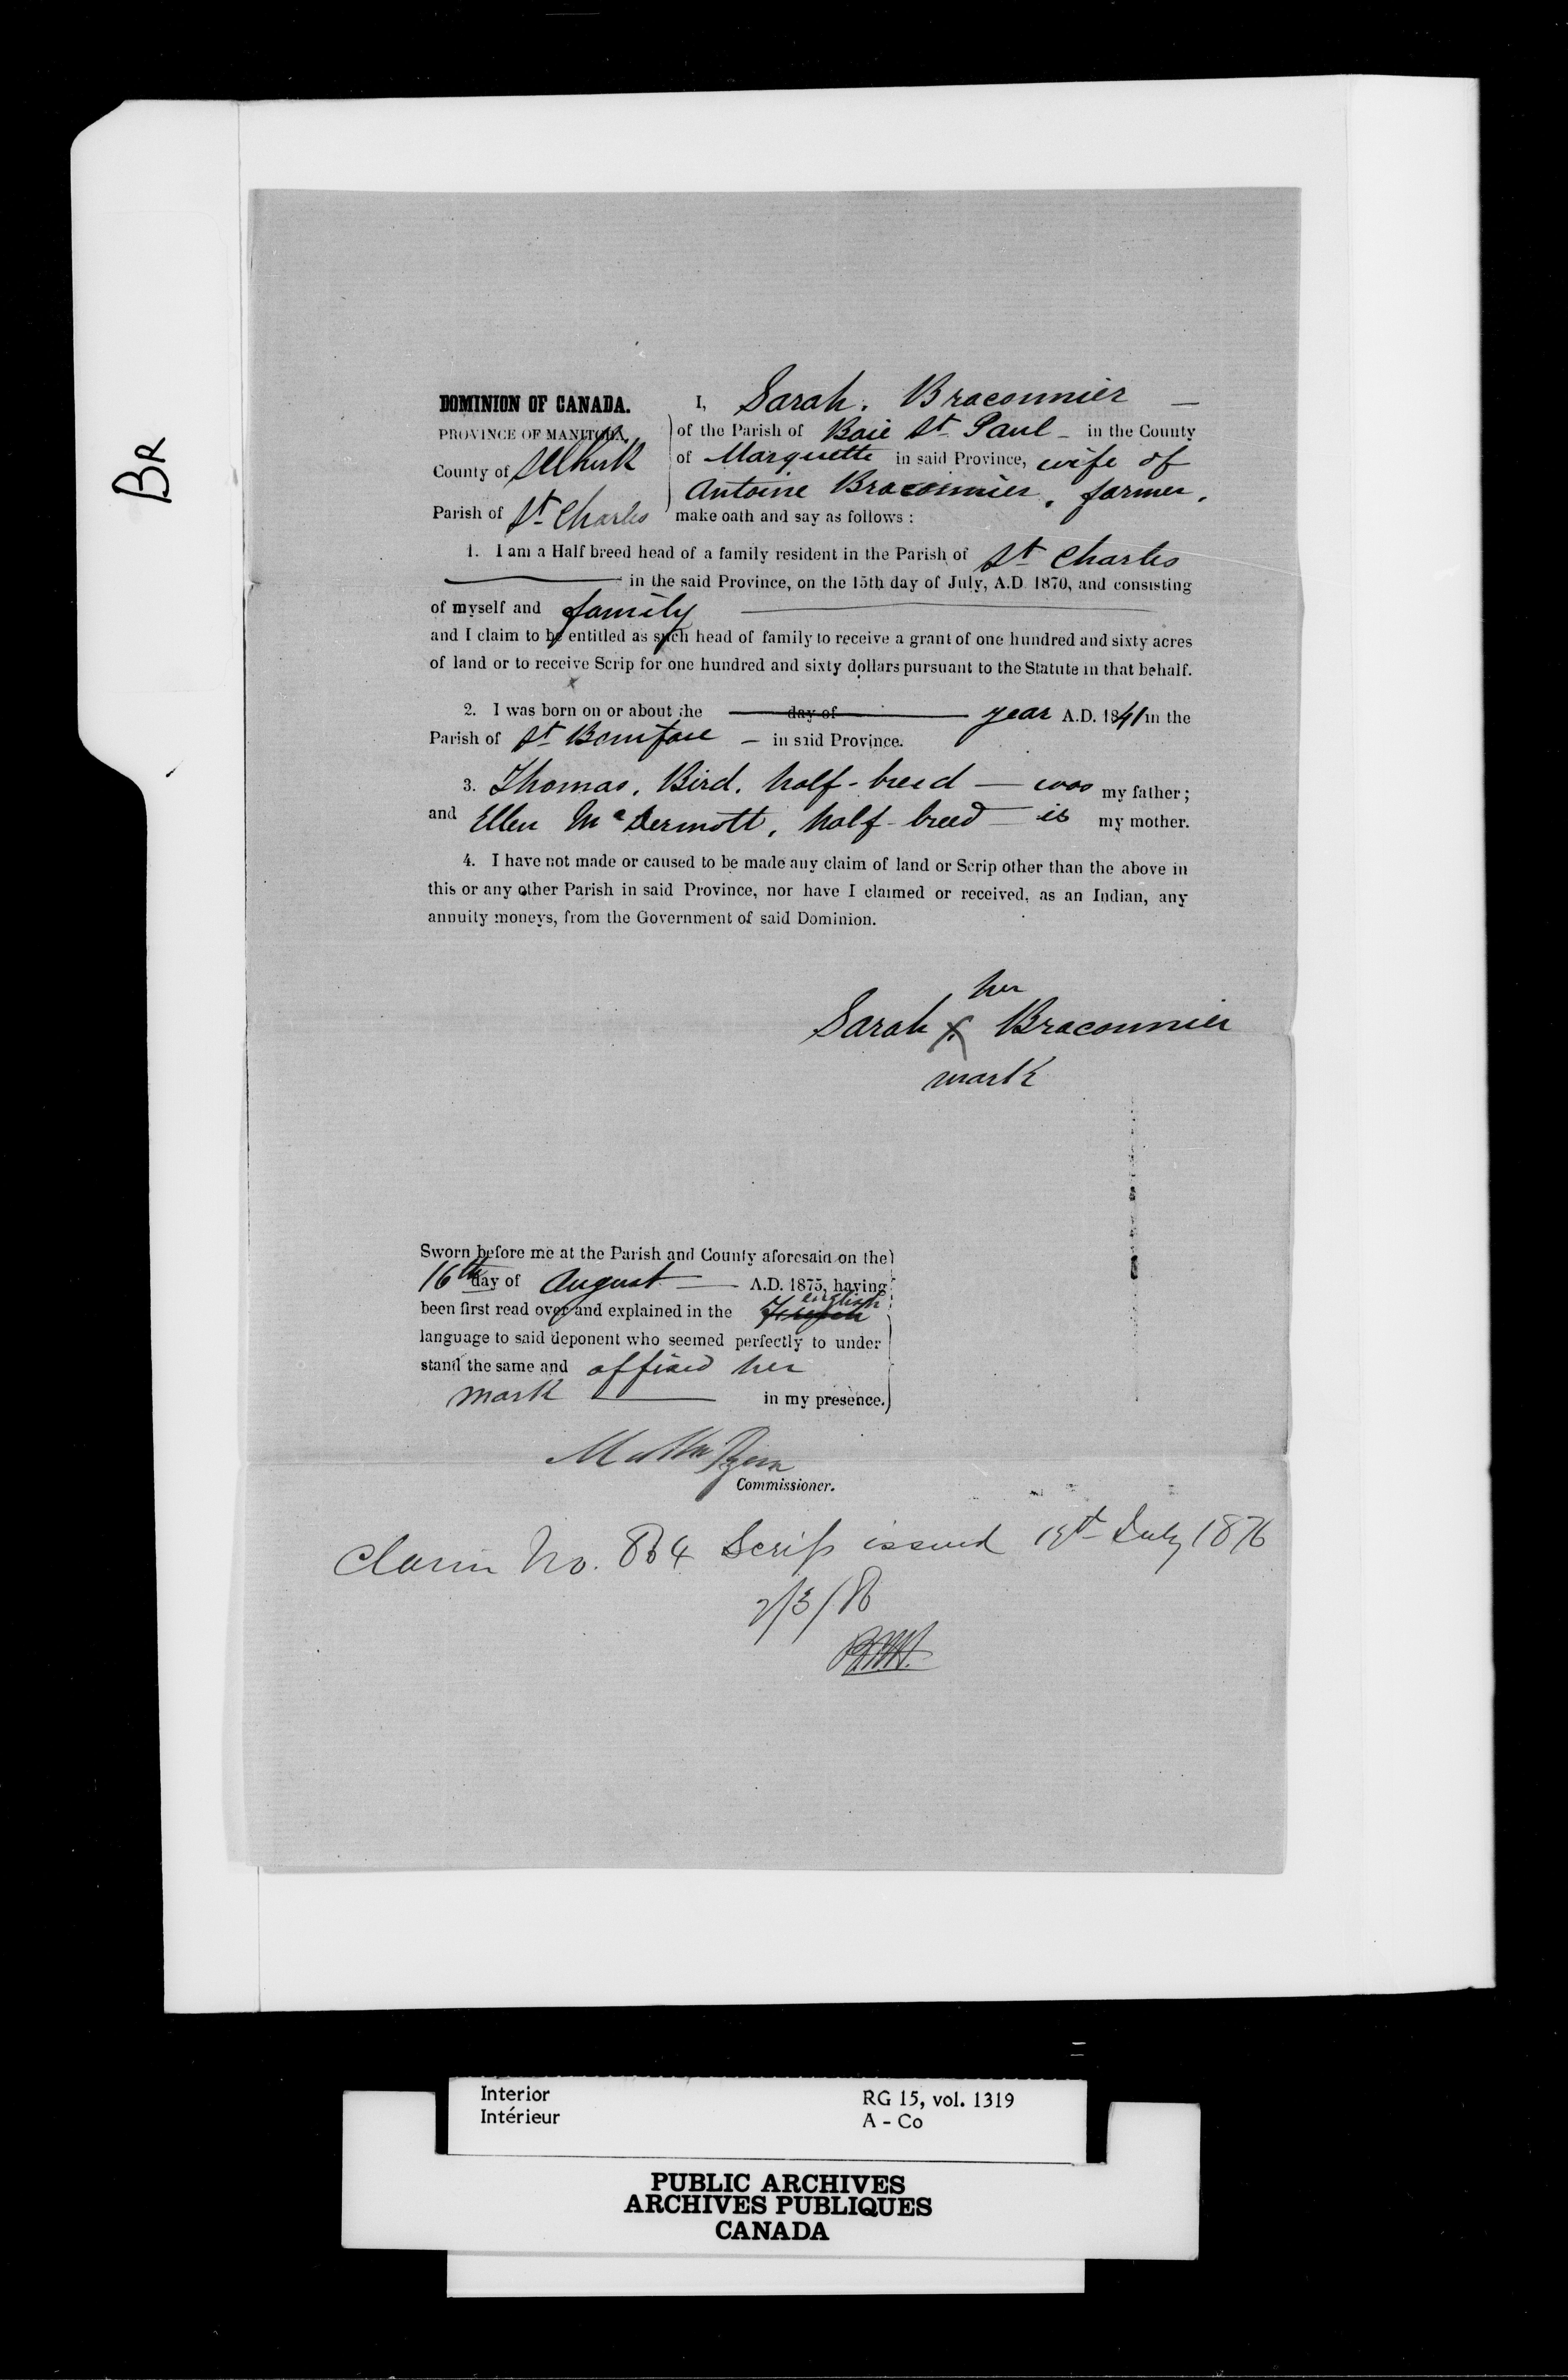 BR
DOMINION OF CANADA.
PROVINCE OF MANITOBA,
County of Selkirk
Parish of St Charles
I, Sarah. Braconnier —
of the Parish of Baie St Paul - in the County
of Marquette in said Province, wife of
Antoine Braconnier, farmer,
make oath and say as follows :
1. I am a Half breed head of a family resident in the Parish of St Charles
in the said Province, on the 15th day of July, A.D. 1870, and consisting
of myself and family
and I claim to be entitled as such head of family to receive a grant of one hundred and sixty acres
of land or to receive Scrip for one hundred and sixty dollars pursuant to the Statute in that behalf.
x
2. I was born on or about the day of year A.D. 1841 in the
Parish of St Boniface - in said Province.
3. Thomas, Bird, half-breed — was my father ;
and Ellen McDermott, half-breed — is my mother.
4. I have not made or caused to be made any claim of land or Scrip other than the above in
this or any other Parish in said Province, nor have I claimed or received, as an Indian, any
annuity moneys, from the Government of said Dominion.
her
Sarah x Braconnier
mark
Sworn before me at the Parish and County aforesaid on the
16th day of August — A.D. 1875, having
english
been first read over and explained in the French
language to said deponent who seemed perfectly to under
stand the same and affixed her
mark — in my presence.
Commissioner.
Claim No. 864 Scrip issued July 1876
Interior
Intérieur
RG 15, vol. 1319
A - Co
PUBLIC ARCHIVES
ARCHIVES PUBLIQUES
CANADA